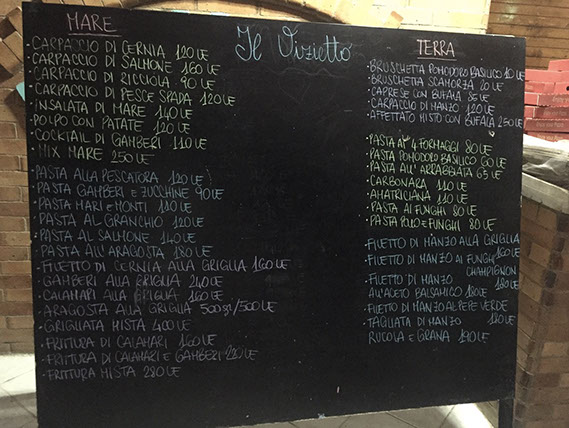 MARE
Il Vizietto
TERRA
· CARPACCIO DI CERNIA 120 LE
· CARPACCIO DI SALMONE 160 LE
· CARPACCIO DI RICCIOLA 90 LE
· CARPACCIO DI PESCE SPADA 120 LE
· INSALATA DI MARE 140 LE
· POLPO CON PATATE 120 LE
· COCKTAIL DI GAMBERI 110 LE
· MIX MARE 250 LE
· PASTA ALLA PESCATORA 120 LE
· PASTA GAMBERI E ZUCCHINE 90 LE
· PASTA MARI E MONTI 110 LE
· PASTA AL GRANCHIO 120 LE
· PASTA AL SALMONE 140 LE
· PASTA ALL'ARAGOSTA 180 LE
· FILETTO DI CERNIA ALLA GRIGLIA 160 LE
· GAMBERI ALLA GRIGLIA 240 LE
· CALAMARI ALLA GRIGLIA 160 LE
· ARAGOSTA ALLA GRIGLIA 500 gr/500 LE
· GRIGLIATA MISTA 400 LE
· FRITTURA DI CALAMARI 160 LE
· FRITTURA DI CALAMARI E GAMBERI 220 LE
· FRITTURA MISTA 280 LE
· BRUSCHETTA POMODORO BASILICO 10 LE
· BRUSCHETTA SCAMORZA 20 LE
· CAPRESE CON BUFALA 85 LE
· CARPACCIO DI MANZO 120 LE
· AFFETTATO MISTO CON BUFALA 250 LE
· PASTA AI 4 FORMAGGI 80 LE
· PASTA POMODORO BASILICO 60 LE
· PASTA ALL'ARRABBIATA 65 LE
· CARBONARA 110 LE
· AMATRICIANA 110 LE
· PASTA AI FUNGHI 80 LE
· PASTA POLLO E FUNGHI 80 LE
· FILETTO DI MANZO ALLA GRIGLIA
160 LE
· FILETTO DI MANZO AI FUNGHI
CHAMPIGNON
180 LE
· FILETTO DI MANZO
ALL'ACETO BALSAMICO 180 LE
· FILETTO DI MANZO AL PEPE VERDE
180 LE
· TAGLIATA DI MANZO
RUCOLA E GRANA 190 LE